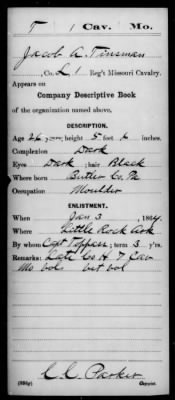 T | 1 | Cav. | Mo.
Jacob A. Tinsman
, Co. L, 1 Reg't Missouri Cavalry.
Appears on
Company Descriptive Book
of the organization named above.
DESCRIPTION.
Age 26 years; height 5 feet 6 inches.
Complexion Dark
Eyes Dark ; hair Black
Where born Butler Co. Pa
Occupation Moulder
ENLISTMENT.
When Jan 3 , 1864.
Where Little Rock Ark
By whom Capt Toppen ; term 3 y'rs.
Remarks: Late Co H 7 Cav
Mo vol vet vol
C. C. Parker
Copyist.